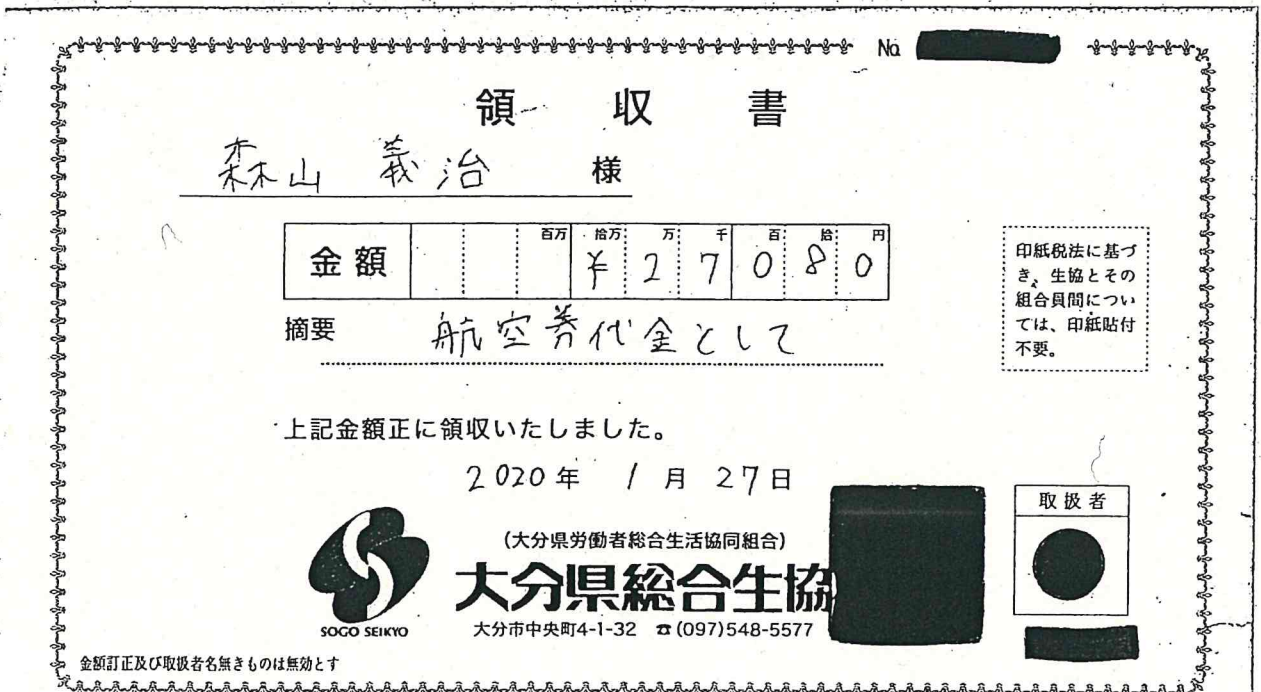 No.
領収書
森山 義治 様
金額 百万 拾万 万 千 百 拾 円
¥27080
摘要 航空券代金として
印紙税法に基づ
き、生協とその
組合員間につい
ては、印紙貼付
不要。
上記金額正に領収いたしました。
2020年 1月 27日
取扱者
(大分県労働者総合生活協同組合)
大分県総合生協
SOGO SEIKYO
大分市中央町4-1-32 ☎(097)548-5577
金額訂正及び取扱者名無きものは無効とす